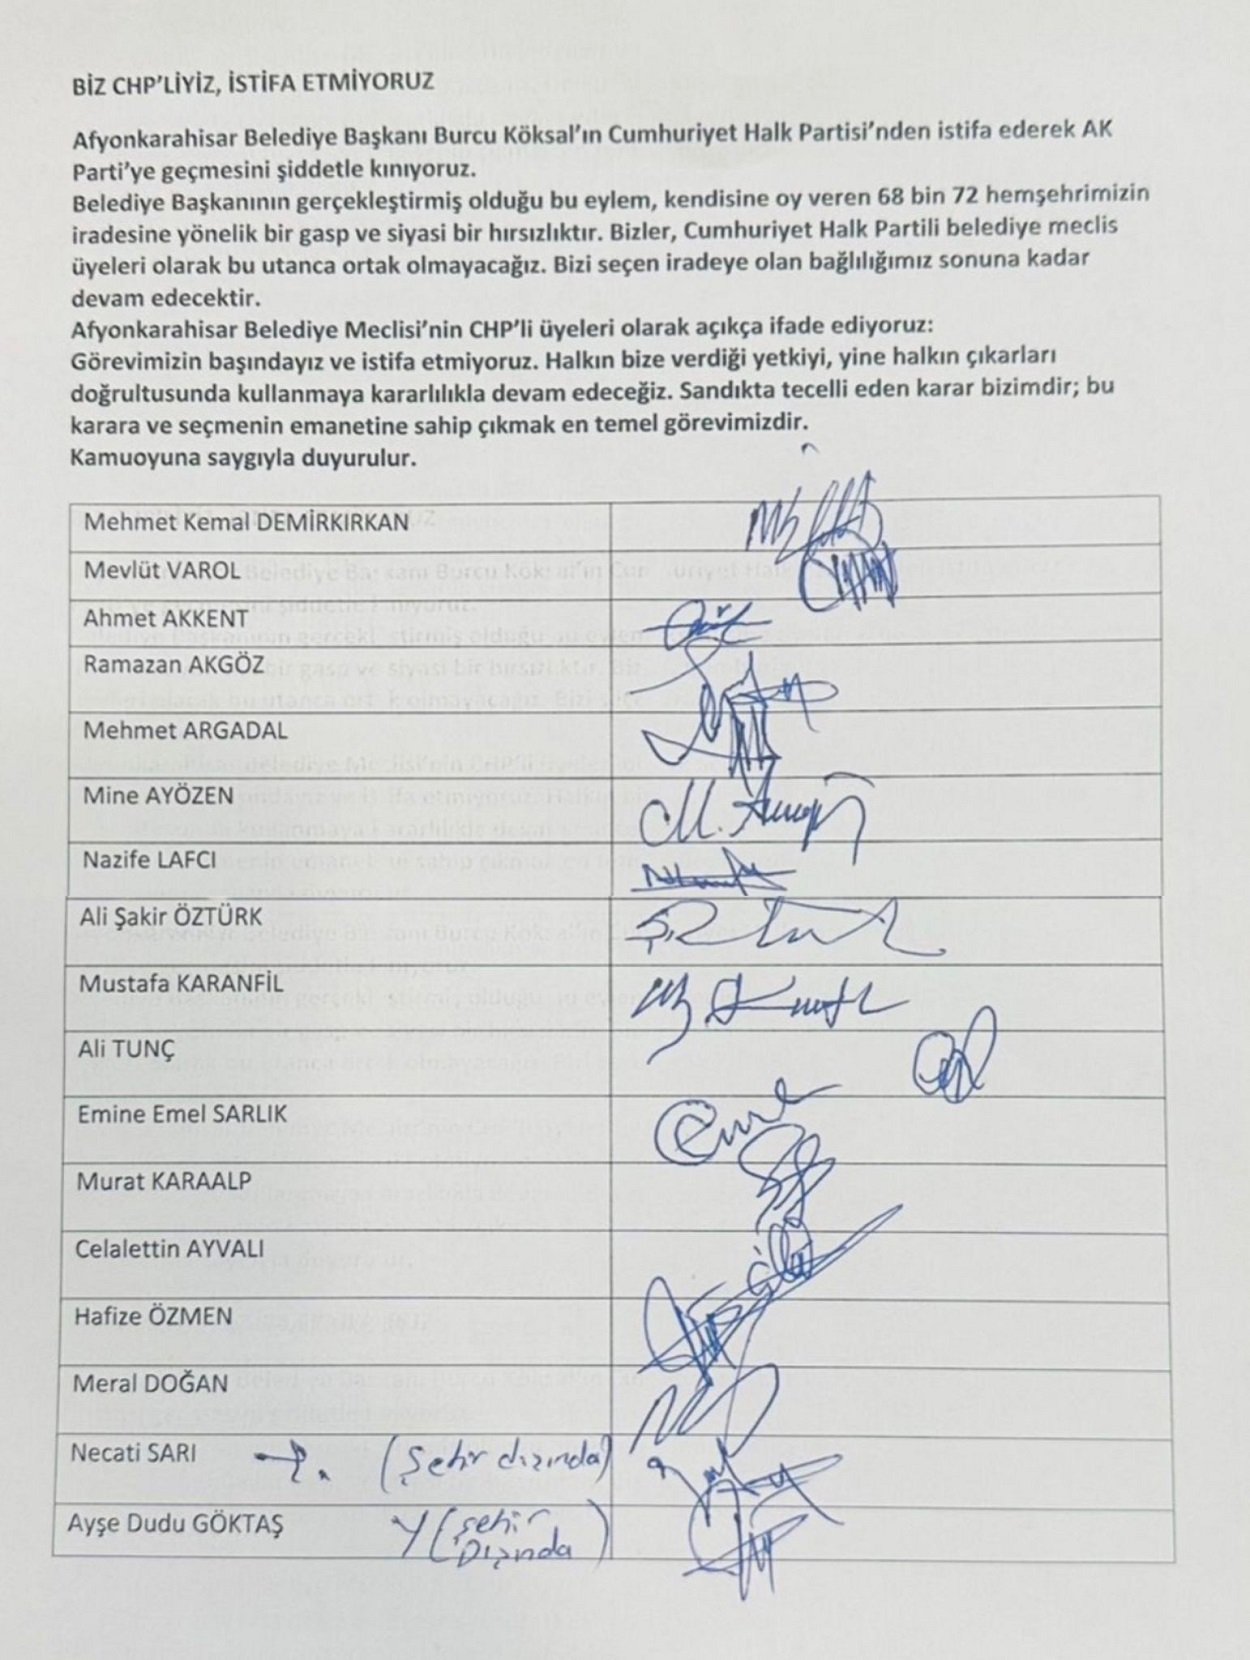 BİZ CHP'LİYİZ, İSTİFA ETMİYORUZ
Afyonkarahisar Belediye Başkanı Burcu Köksal'ın Cumhuriyet Halk Partisi'nden istifa ederek AK
Parti'ye geçmesini şiddetle kınıyoruz.
Belediye Başkanının gerçekleştirmiş olduğu bu eylem, kendisine oy veren 68 bin 72 hemşehrimizin
iradesine yönelik bir gasp ve siyasi bir hırsızlıktır. Bizler, Cumhuriyet Halk Partili belediye meclis
üyeleri olarak bu utanca ortak olmayacağız. Bizi seçen iradeye olan bağlılığımız sonuna kadar
devam edecektir.
Afyonkarahisar Belediye Meclisi'nin CHP'li üyeleri olarak açıkça ifade ediyoruz:
Görevimizin başındayız ve istifa etmiyoruz. Halkın bize verdiği yetkiyi, yine halkın çıkarları
doğrultusunda kullanmaya kararlılıkla devam edeceğiz. Sandıkta tecelli eden karar bizimdir; bu
karara ve seçmenin emanetine sahip çıkmak en temel görevimizdir.
Kamuoyuna saygıyla duyurulur.
Mehmet Kemal DEMİRKIRKAN
Mevlüt VAROL
Ahmet AKKENT
Ramazan AKGÖZ
Mehmet ARGADAL
Mine AYÖZEN
Nazife LAFCI
Ali Şakir ÖZTÜRK
Mustafa KARANFİL
Ali TUNÇ
Emine Emel SARLIK
Murat KARAALP
Celalettin AYVALI
Hafize ÖZMEN
Meral DOĞAN
Necati SARI (Şehir dışında)
Ayşe Dudu GÖKTAŞ (Şehir
Dışında)